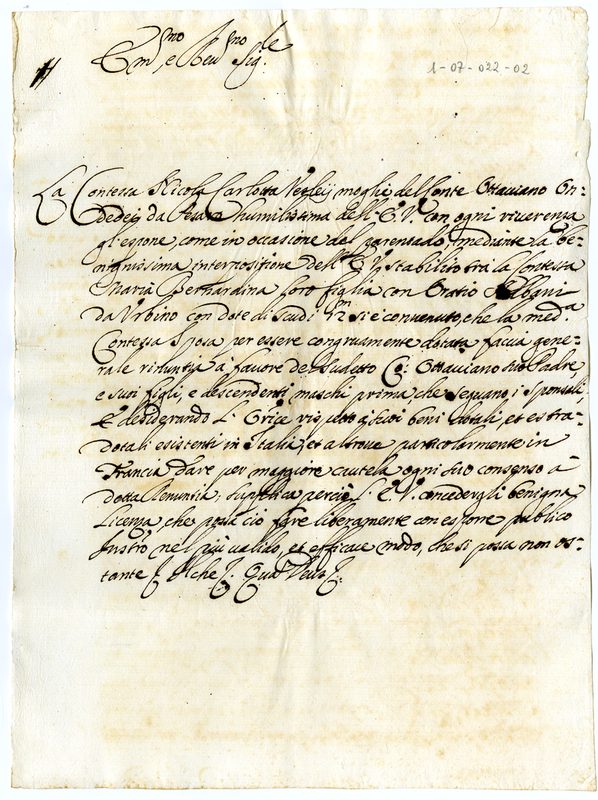 Em.mo e Rev.mo Sig.re
1-07-022-02
La Contessa Nicola Carlotta moglie del Conte Ottaviano On-
dedei da Pesaro humilissima dell'E. V. con ogni riverenza
gl'espone come in occasione del parentado, mediante la be-
nignissima interpositione dell'E. V. stabilito tra la Contessa
Maria Bernardina loro figlia con Oratio Albani
da Urbino con dote di scudi si è convenuto, che la med.a
Contessa Sposa per essere congruamente dotata faccia gene-
rale rinuntia à favore del sudetto Co: Ottaviano suo Padre
e suoi figli, e descendenti maschi prima che seguano i sponsali,
Et desiderando l'Orice rispetto à suoi beni dotali, et estra-
dotali esistenti in Italia, et altrove particolarmente in
Francia dare per maggiore cautela ogni suo consenso à
detta Renuntia; supplica perciò l'E. V. concedergli benigna
Licenza, che possa ciò fare liberamente con esporre publico
Instro nel più valido, et efficace modo, che si possa non os-
tante Che